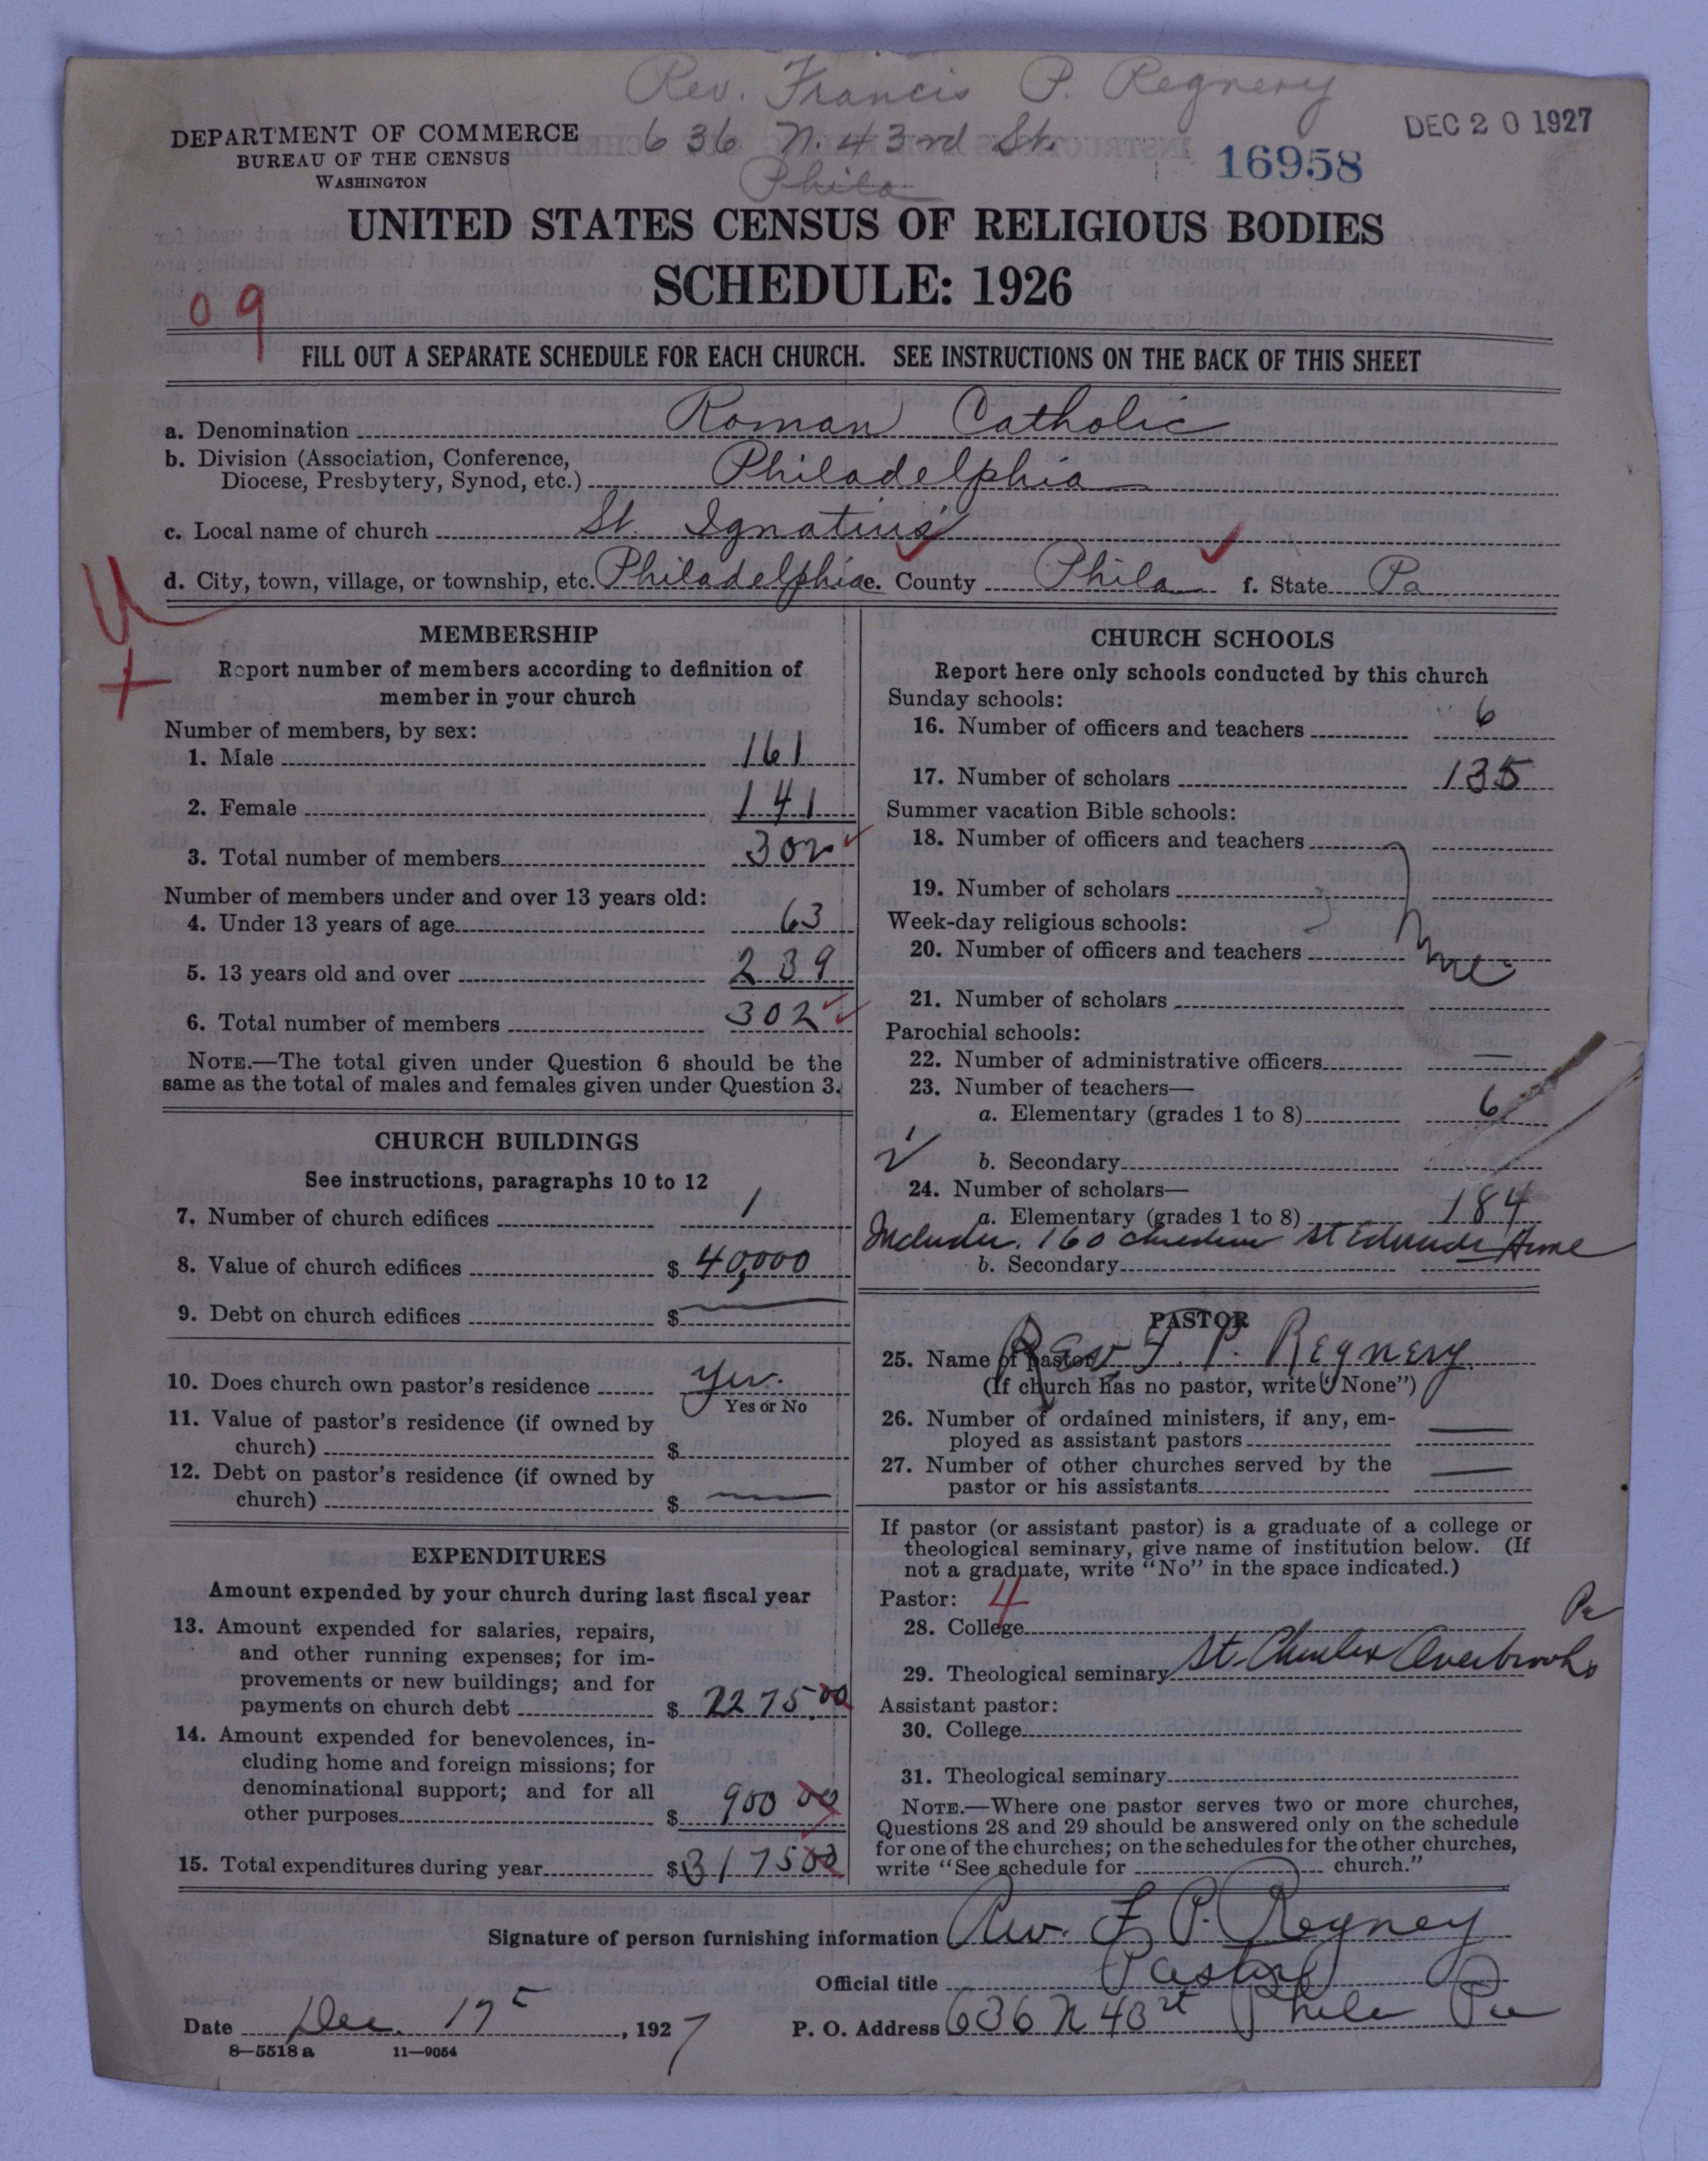 Rev. Francis P. Regnery
DEPARTMENT OF COMMERCE
636 N. 43rd St.
DEC 20 1927
BUREAU OF THE CENSUS
16958
WASHINGTON
Phila
UNITED STATES CENSUS OF RELIGIOUS BODIES
SCHEDULE: 1926
09
FILL OUT A SEPARATE SCHEDULE FOR EACH CHURCH. SEE INSTRUCTIONS ON THE BACK OF THIS SHEET
a. Denomination Roman Catholic
b. Division (Association, Conference,
Diocese, Presbytery, Synod, etc.) Philadelphia
c. Local name of church St. Ignatius
d. City, town, village, or township, etc. Philadelphia e. County Phila f. State Pa
MEMBERSHIP
Report number of members according to definition of
member in your church
Number of members, by sex:
1. Male 161
2. Female 141
3. Total number of members 302
Number of members under and over 13 years old:
4. Under 13 years of age 63
5. 13 years old and over 239
6. Total number of members 302
NOTE.—The total given under Question 6 should be the
same as the total of males and females given under Question 3.
CHURCH BUILDINGS
See instructions, paragraphs 10 to 12
7. Number of church edifices 1
8. Value of church edifices $ 40,000
9. Debt on church edifices $ —
10. Does church own pastor's residence Yes.
Yes or No
11. Value of pastor's residence (if owned by
church) $
12. Debt on pastor's residence (if owned by
church) $ —
EXPENDITURES
Amount expended by your church during last fiscal year
13. Amount expended for salaries, repairs,
and other running expenses; for im-
provements or new buildings; and for
payments on church debt $ 2275.00
14. Amount expended for benevolences, in-
cluding home and foreign missions; for
denominational support; and for all
other purposes $ 900 00
15. Total expenditures during year $ 3175 00
CHURCH SCHOOLS
Report here only schools conducted by this church
Sunday schools:
16. Number of officers and teachers 6
17. Number of scholars 135
Summer vacation Bible schools:
18. Number of officers and teachers
19. Number of scholars
Week-day religious schools:
20. Number of officers and teachers
21. Number of scholars
Parochial schools:
22. Number of administrative officers —
23. Number of teachers—
a. Elementary (grades 1 to 8) 6
b. Secondary
24. Number of scholars—
a. Elementary (grades 1 to 8) 184
Includes 160 children St Edwards Home
b. Secondary
PASTOR
25. Name of pastor Rev F. P. Regnery
(If church has no pastor, write "None")
26. Number of ordained ministers, if any, em-
ployed as assistant pastors —
27. Number of other churches served by the
pastor or his assistants —
If pastor (or assistant pastor) is a graduate of a college or
theological seminary, give name of institution below. (If
not a graduate, write "No" in the space indicated.)
Pastor: 4
28. College
Pa
29. Theological seminary St. Charles Overbrook
Assistant pastor:
30. College
31. Theological seminary
NOTE.—Where one pastor serves two or more churches,
Questions 28 and 29 should be answered only on the schedule
for one of the churches; on the schedules for the other churches,
write "See schedule for church."
Signature of person furnishing information Rev. F. P. Regnery
Official title Pastor
Date Dec. 17, 1927
P. O. Address 636 N 43rd Phila Pa
8—5518 a 11—9054